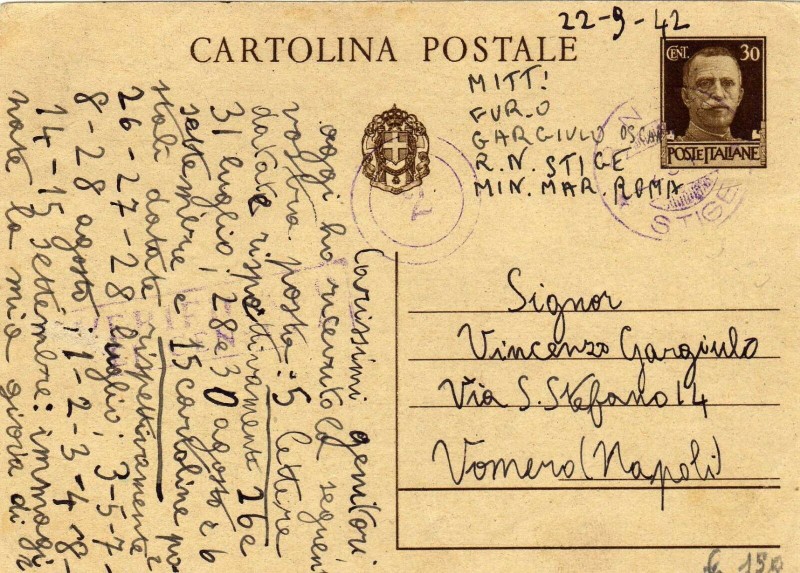 22-9-42
CARTOLINA POSTALE
CENT. 30
POSTE ITALIANE
MITT:
FUR.O
GARGIULO OSCAR
R.N. STIGE
MIN. MAR. ROMA
STIGE
Signor
Vincenzo Gargiulo
Via S. Stefano 14
Vomero (Napoli)
Carissimi genitori
oggi ho ricevuto la seguen
vostra posta: 5 lettere
datate rispettivamente 26 e
31 luglio, 28 e 30 agosto e 6
settembre e 15 cartoline po
stali datate rispettivamente
26-27-28 luglio; 3-5-7-
8-28 agosto; 1-2-3-4-8-
14-15 settembre: immagi
nate la mia gioia di
€ 150